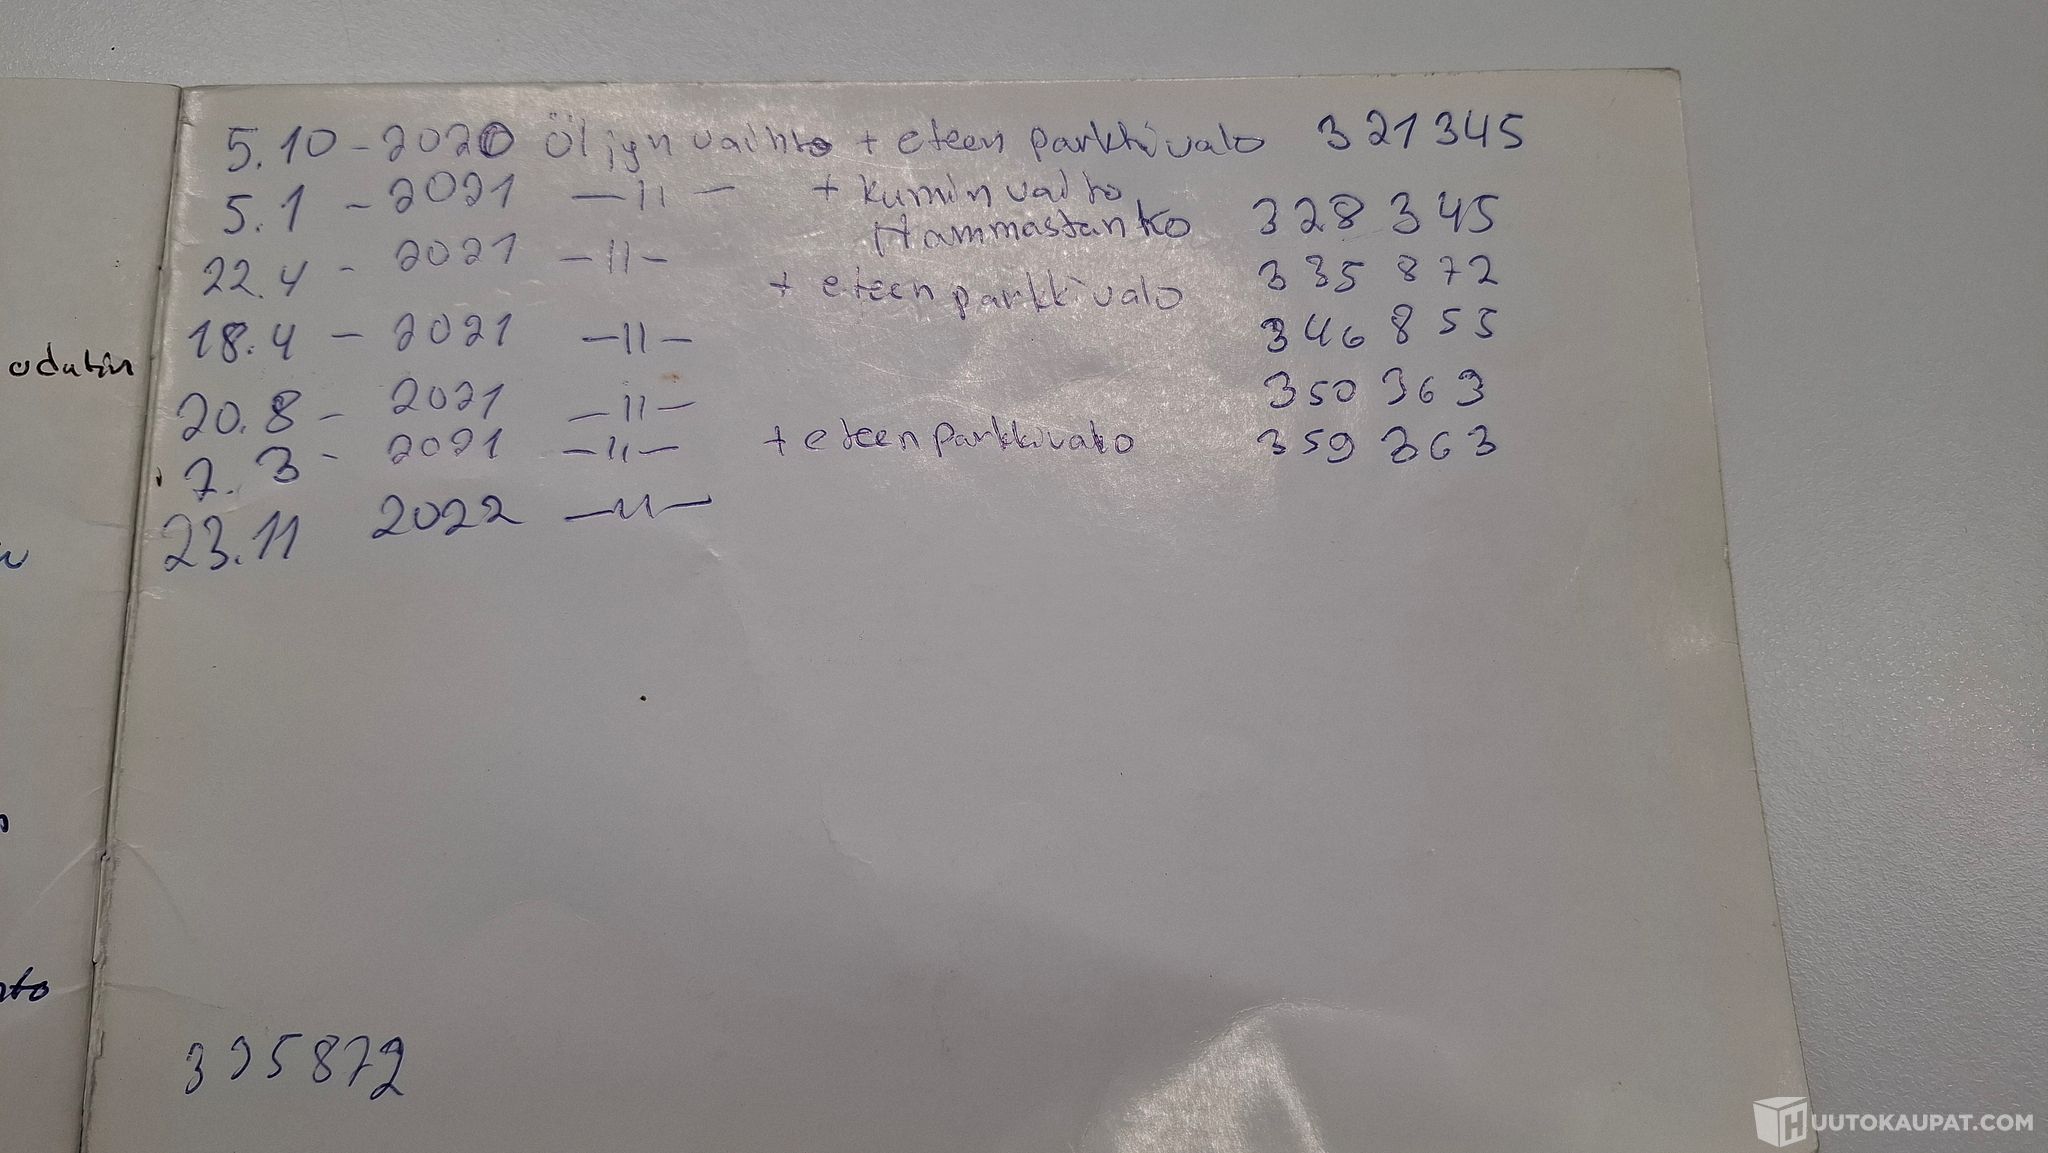 5.10-2020 Öljyn vaihto + eteen parkkivalo 321345
5.1 - 2021 —11— + kumin vaito
Hammastanko 328 345
22.4 - 2021 —11— + eteen parkkivalo 335 872
18.4 - 2021 —11— 346 855
20.8 - 2021 —11— 350 363
7.3 - 2021 —11— + eteen parkkivalo 359 363
23.11 2022 —11—
335872
UUTOKAUPAT.COM